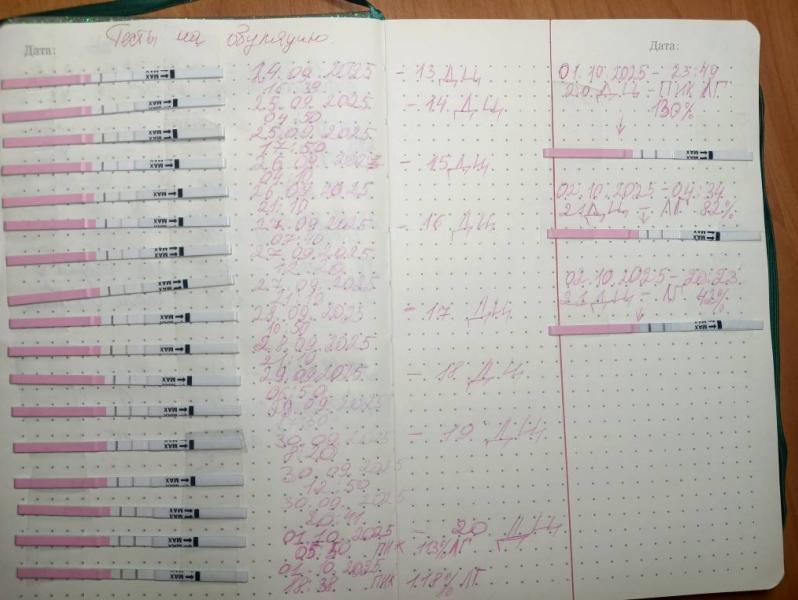 Дата:
Тесты на овуляцию.
24.09.2025 - 13 Д.Ц.
16.39
25.09.2025 - 14 Д.Ц.
04.50
25.09.2025
17.50
26.09.2025 - 15 Д.Ц.
09.10
26.09.2025
21.10
27.09.2025 - 16 Д.Ц.
07.10
27.09.2025
27.09.2025
21.10
28.09.2025 - 17 Д.Ц.
10.50
28.09.2025
21.10
29.09.2025 - 18 Д.Ц.
29.09.2025
30.09.2025 - 19 Д.Ц.
30.09.2025
12.50
30.09.2025
20.41
01.10.2025 - 20 Д.Ц.
05.30 ПИК 103% ЛГ
01.10.2025
18.38 ПИК 118% ЛГ.
Дата:
01.10.2025 - 23:49
20 Д.Ц - ПИК ЛГ
130%
02.10.2025 - 04:34
21 Д.Ц - ЛГ 82%
02.10.2025 - 20:23
21 Д.Ц - ЛГ 42%
MAX
MAX
MAX
MAX
MAX
MAX
MAX
MAX
MAX
MAX
MAX
MAX
MAX
MAX
MAX
MAX
MAX
MAX
MAX
MAX